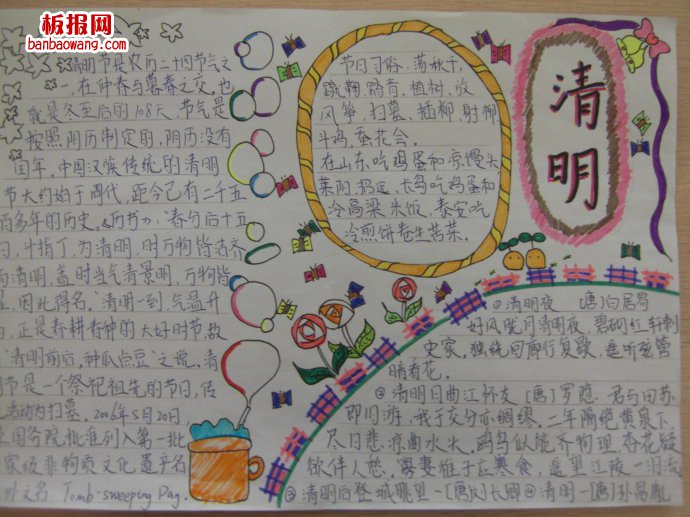 板报网
banbaowang.com
清明节是农历二十四节气之
一,在仲春与暮春之交,也
就是冬至后的108天,节气是
按照阴历制定的,阴历没有
闰年,中国汉族传统的清明
节大约始于周代,距今已有二千五
百多年的历史。《历书》:"春分后十五
日,斗指丁,为清明,时万物皆洁齐
而清明,盖时当气清景明,万物皆
显,因此得名。"清明一到,气温升
高,正是春耕春种的大好时节,故
"清明前后,种瓜点豆"之说。清
节是一个祭祀祖先的节日,传
活动为扫墓。2006年5月20日
国务院批准列入第一批
家级非物质文化遗产名
外文名 Tomb-sweeping Day.
节日习俗:荡秋千,
蹴鞠,踏青,植树,放
风筝,扫墓,插柳,射柳
斗鸡,蚕花会。
在山东,吃鸡蛋和凉馒头
莱阳,招远,长岛吃鸡蛋和
冷高粱米饭,泰安吃
冷煎饼卷生苦菜。
清明
①清明夜 (唐)白居易
好风胧月清明夜,碧砌红轩刺
史家。独绕回廊行复歇,遥听弦管
暗看花。
②清明日曲江怀友 (唐)罗隐 君与田苏
即旧游,我于交分亦绸缪。二年隔绝黄泉下,
尽日悲凉曲水头。鸥鸟似能齐物理,杏花疑
欲伴人愁。寡妻稚子应寒食,遥望江陵一泪流
③清明后登城眺望-(唐)刘长卿④清明-(唐)孙昌胤